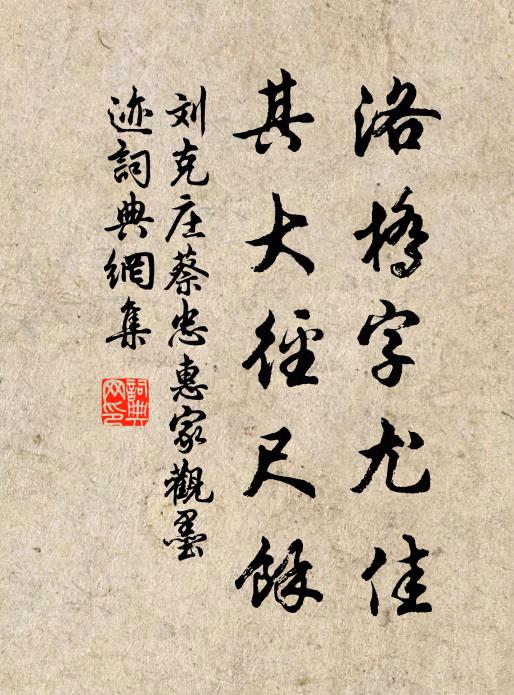 洛橋字尤佳
其大徑尺餘
刘克庄蔡忠惠家觀墨
迹詞典網集
詞典
网印